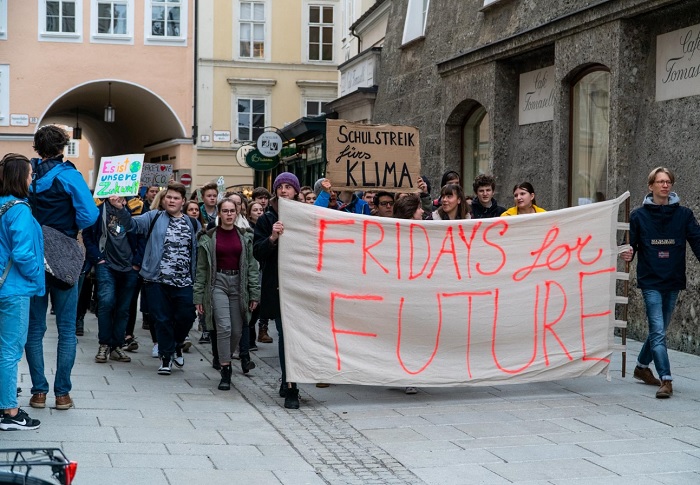 SCHULSTREIK
fürs
KLIMA
Café
Tomaselli
Es ist
unsere
Zukunft
FRIDAYS for
FUTURE
NAPAPIJRI